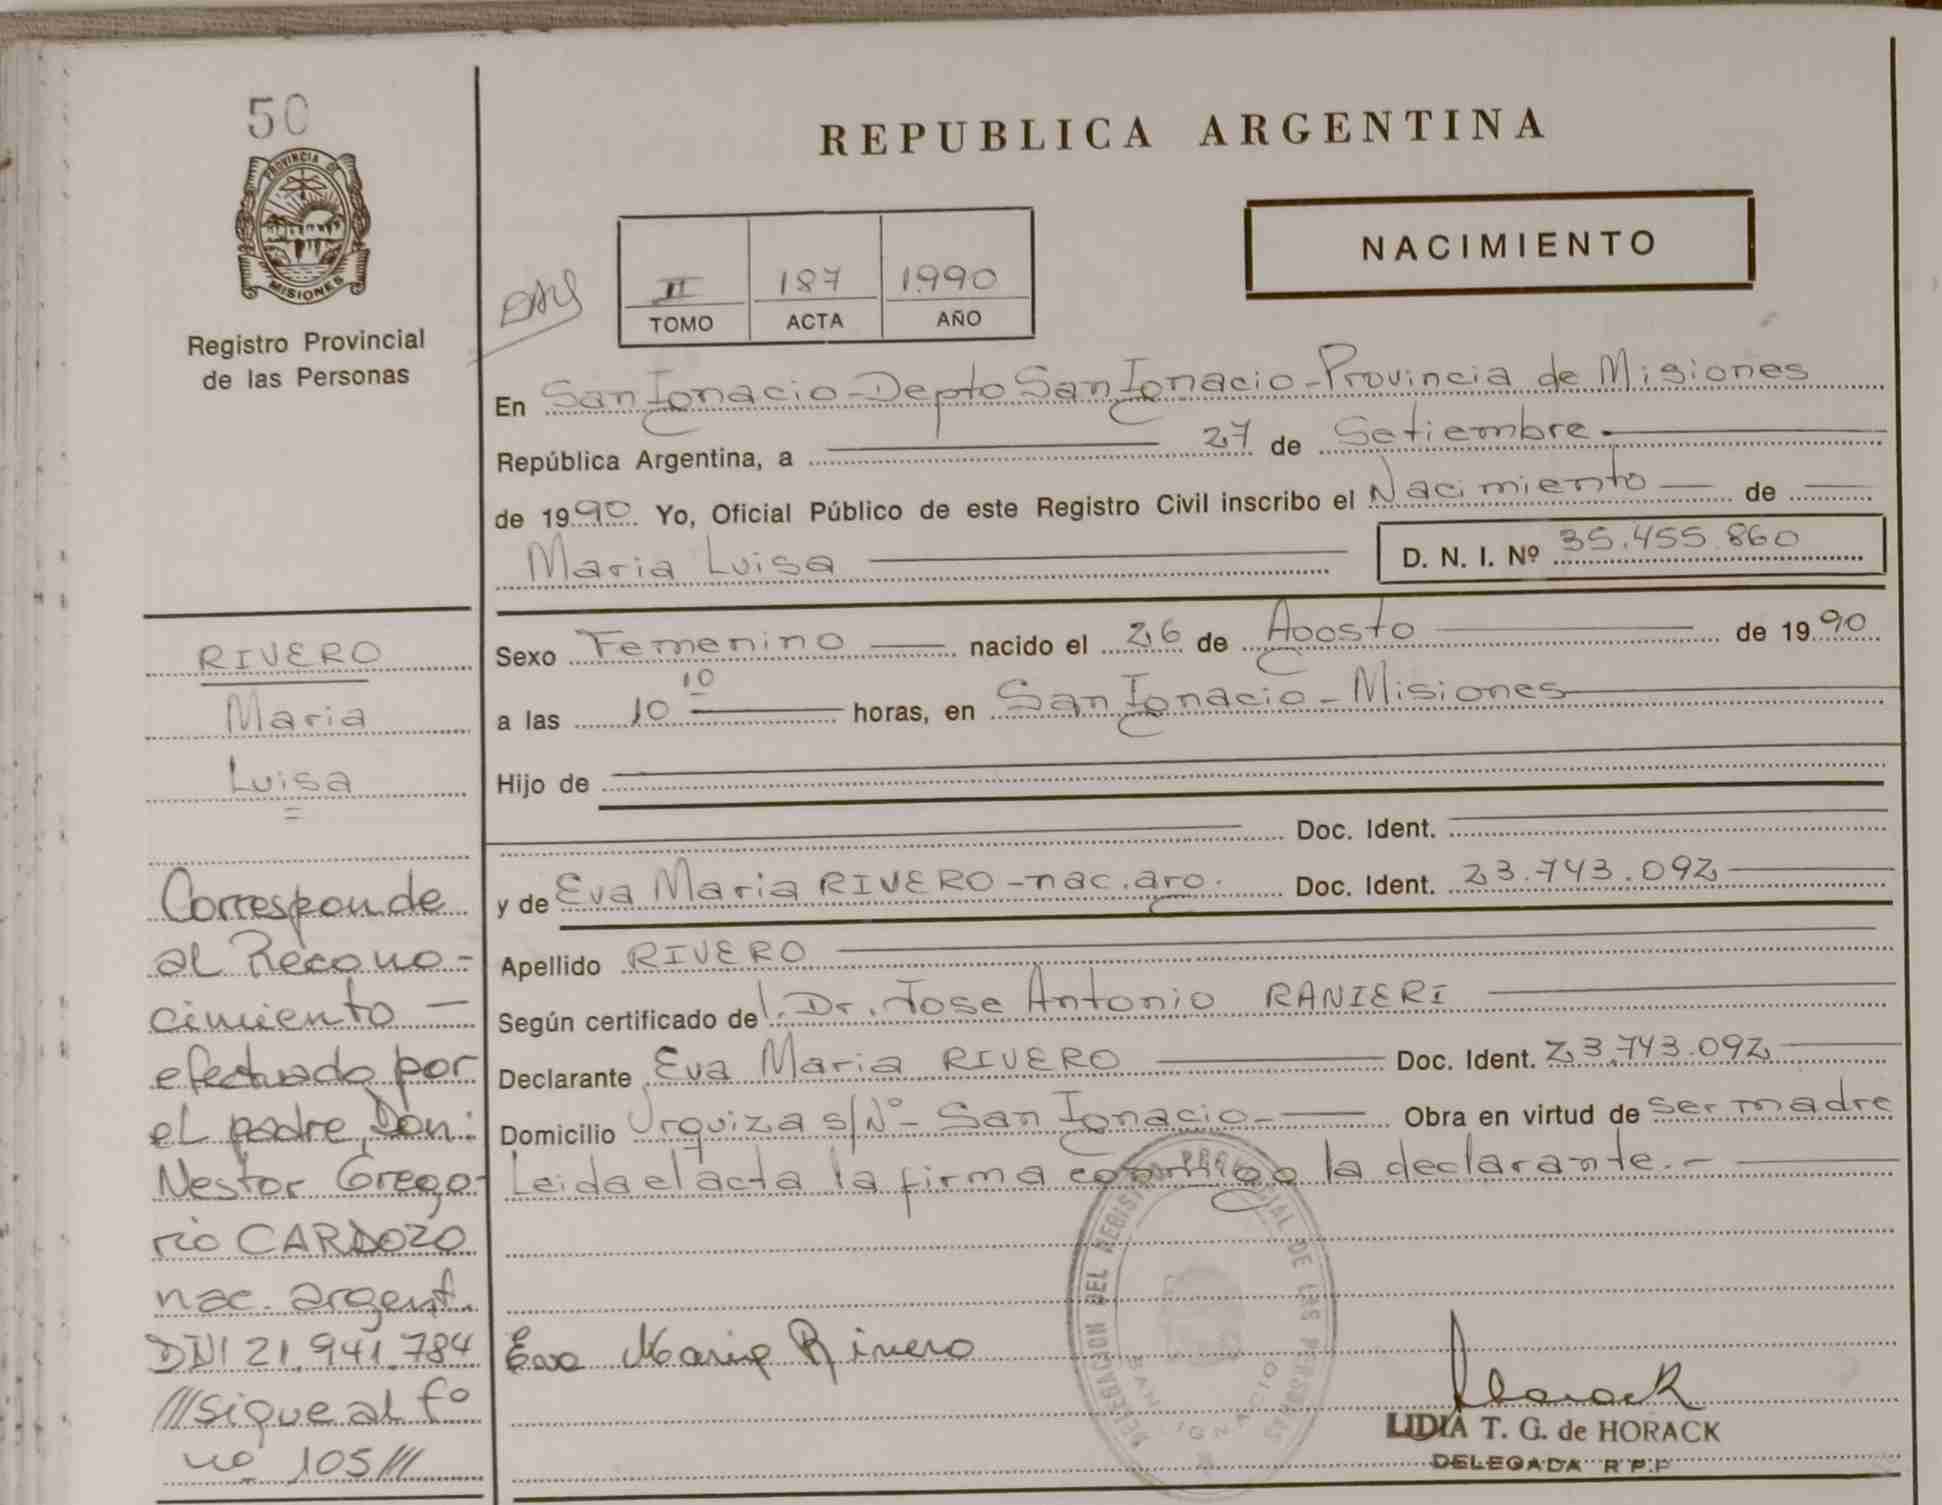 50
PROVINCIA DE
MISIONES
Registro Provincial
de las Personas
REPUBLICA ARGENTINA
NACIMIENTO
II 187 1990
TOMO ACTA AÑO
En San Ignacio - Depto San Ignacio - Provincia de Misiones
República Argentina, a 27 de Setiembre.
de 1990 Yo, Oficial Público de este Registro Civil inscribo el Nacimiento de
Maria Luisa D. N. I. Nº 35.455.860
Sexo Femenino nacido el 26 de Agosto de 1990
a las 10 10 horas, en San Ignacio - Misiones
Hijo de
Doc. Ident.
y de Eva Maria RIVERO - nac. arg. Doc. Ident. 23.743.092
Apellido RIVERO
Según certificado del Dr. Jose Antonio RANIERI
Declarante Eva Maria RIVERO Doc. Ident. 23.743.092
Domicilio Urquiza s/Nº - San Ignacio - Obra en virtud de ser madre
Leida el acta la firma conmigo la declarante. -
Eva Maria Rivero
DELEGACION DEL REGISTRO PROVINCIAL DE LAS PERSONAS
SAN IGNACIO
Horack
LIDIA T. G. de HORACK
DELEGADA R.P.P
RIVERO
Maria
Luisa
=
Corresponde
al Recono-
cimiento -
efectuado por
el padre, Don:
Nestor Grego-
rio CARDOZO
nac. argent.
DNI 21.941.784
///sigue al fº
nº 105///